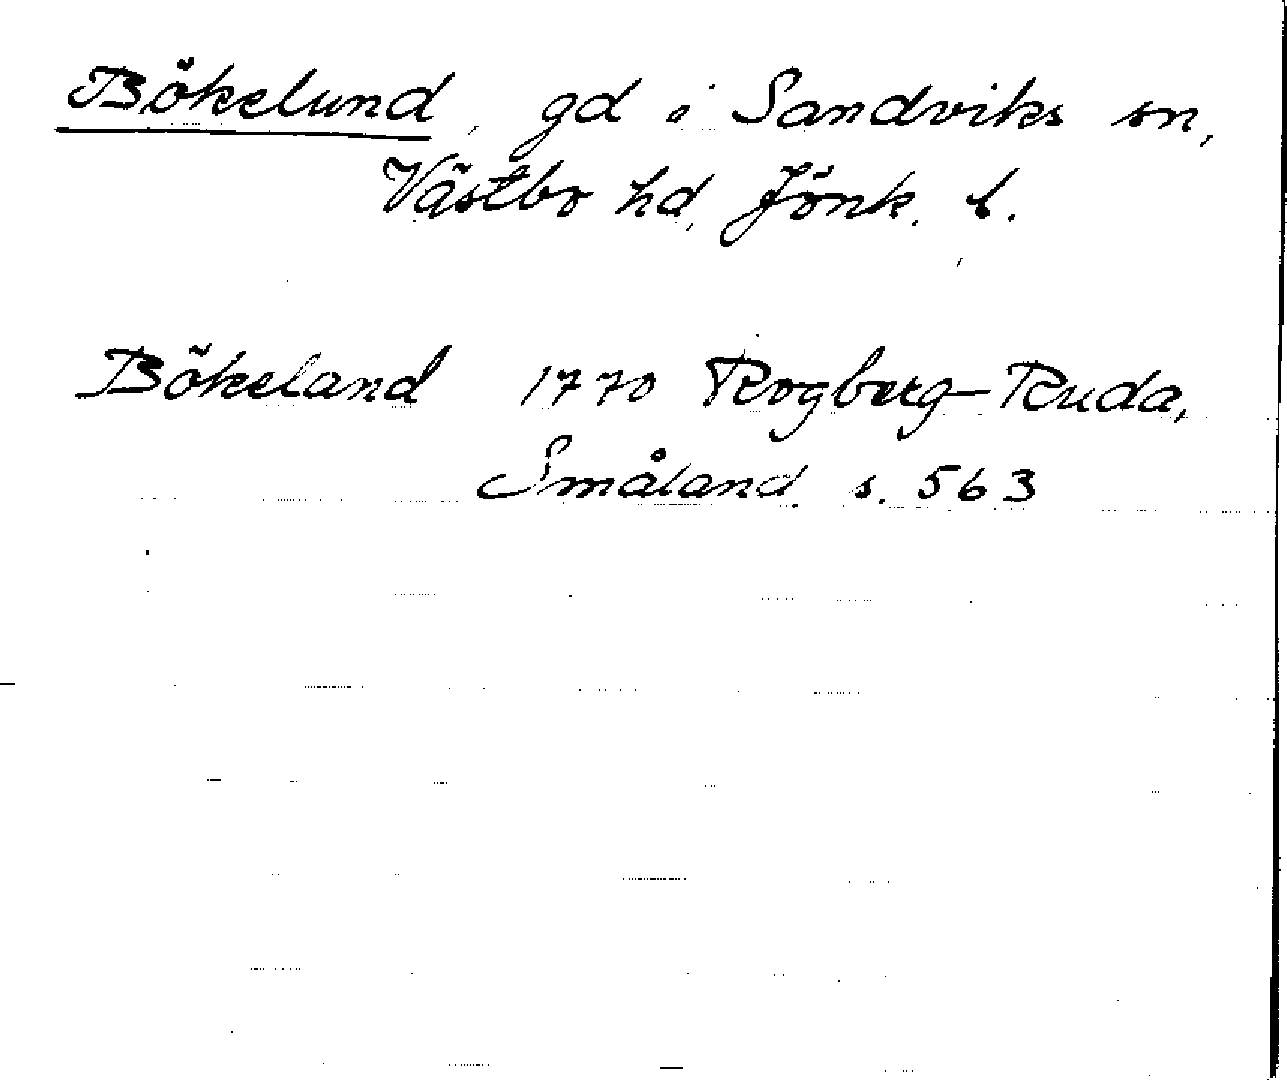 Bökelund, gd i Sandviks sn,
Västbo hd, Jönk. l.
Bökeland 1770 Rogberg-Ruda,
Småland s. 563